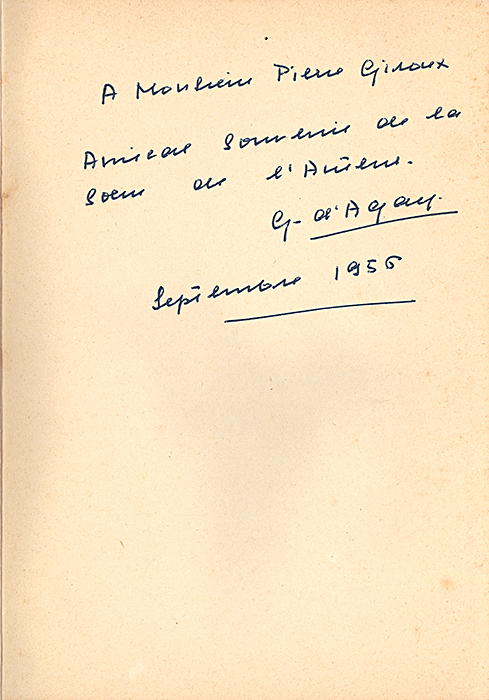 A Monsieur Pierre Giroux
Amical Souvenir de la
Soeur de l'Auteur.
G. d'Agay.
Septembre 1956